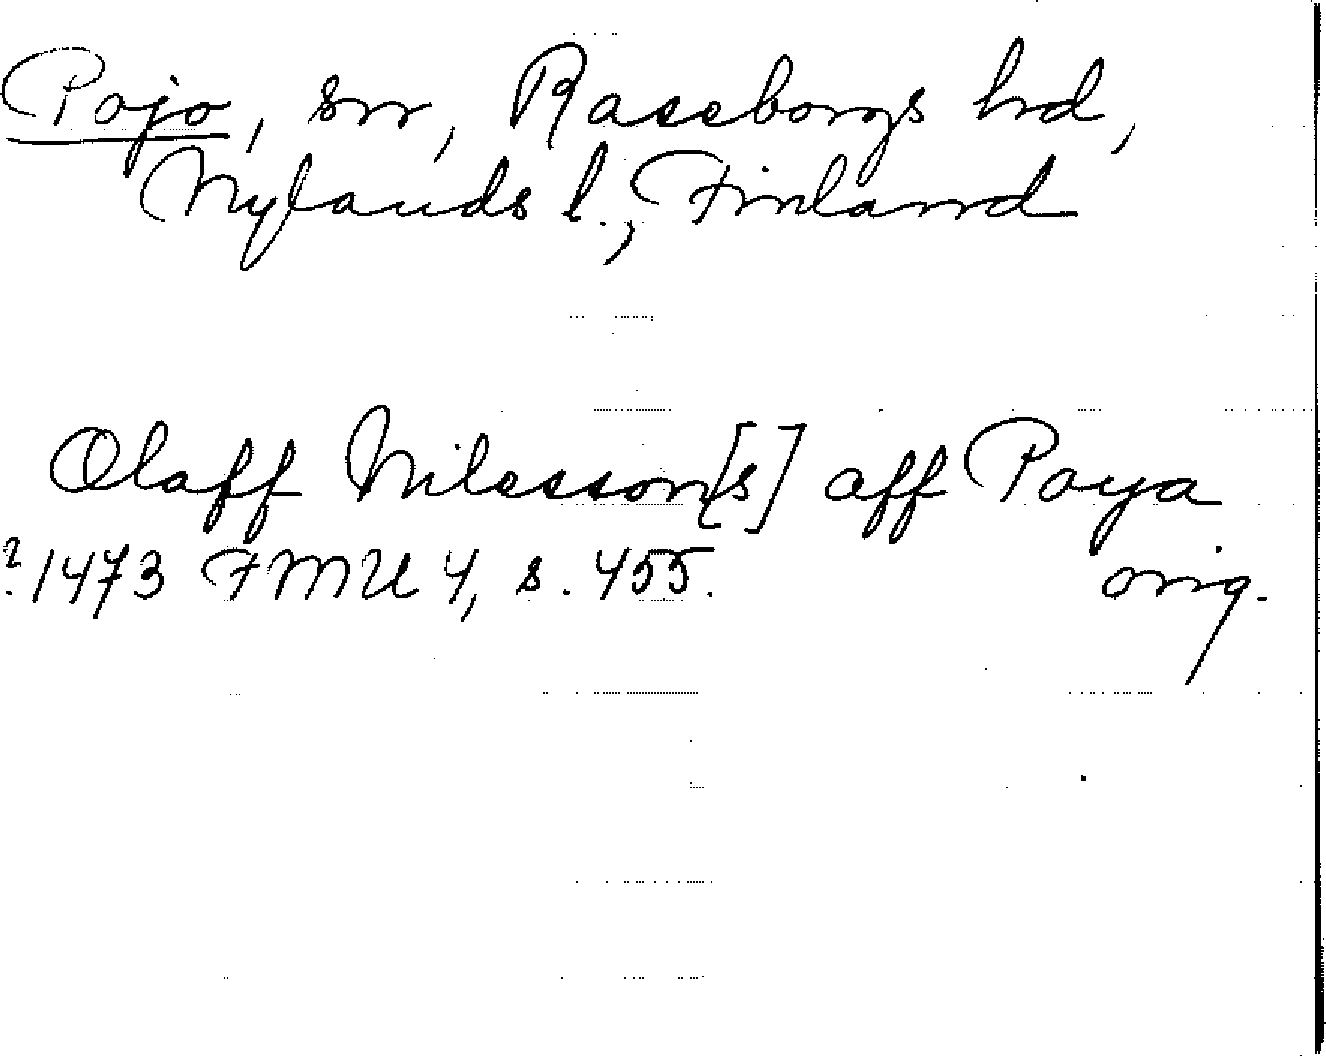 Pojo, sn, Raseborgs hd,
Nylands l., Finland
Olaff Nilsson[s] aff Poya
? 1473 FMU 4, s. 455. orig.